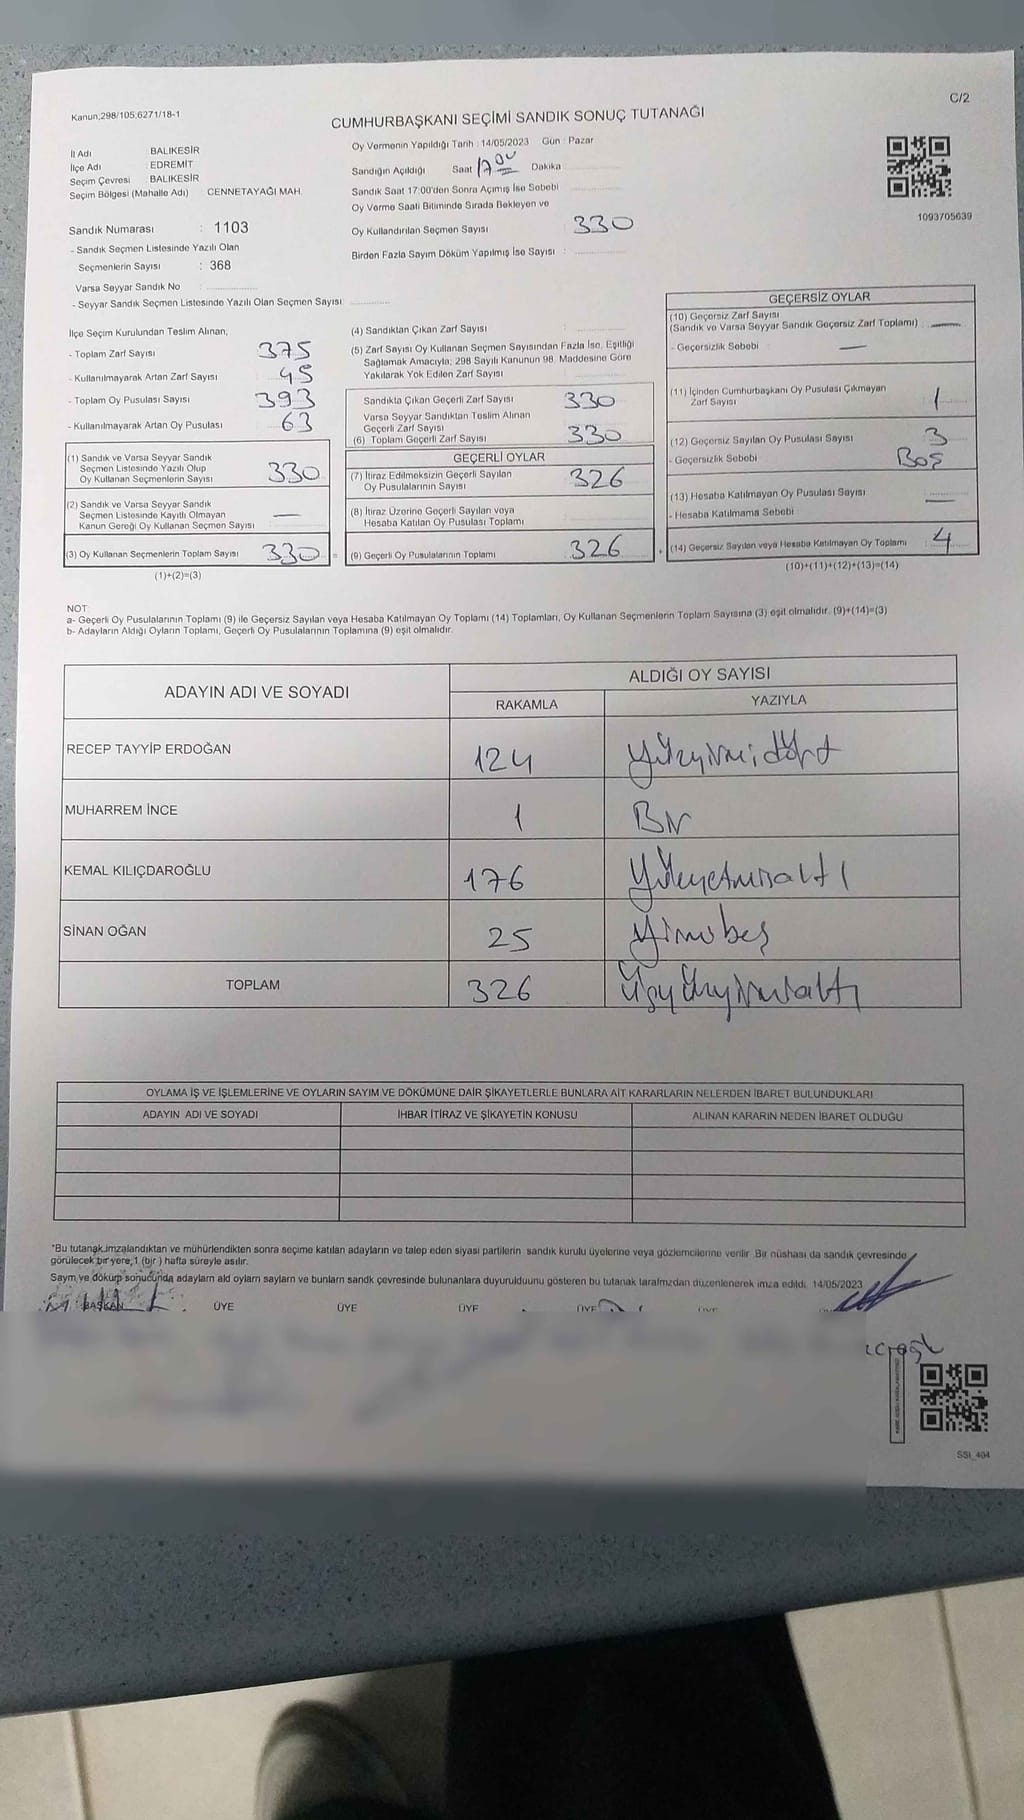 C/2
Kanun;298/105;6271/18-1
CUMHURBAŞKANI SEÇİMİ SANDIK SONUÇ TUTANAĞI
İl Adı : BALIKESİR
İlçe Adı : EDREMİT
Seçim Çevresi : BALIKESİR
Seçim Bölgesi (Mahalle Adı) CENNETAYAĞI MAH.
Oy Vermenin Yapıldığı Tarih : 14/05/2023 Gün : Pazar
Sandığın Açıldığı Saat 17 00 Dakika
Sandık Saat 17:00'den Sonra Açımış İse Sebebi
Oy Verme Saati Bitiminde Sırada Bekleyen ve
Oy Kullandırılan Seçmen Sayısı : 330
Birden Fazla Sayım Döküm Yapılmış İse Sayısı :
1093705639
Sandık Numarası : 1103
- Sandık Seçmen Listesinde Yazılı Olan
Seçmenlerin Sayısı : 368
Varsa Seyyar Sandık No :
- Seyyar Sandık Seçmen Listesinde Yazılı Olan Seçmen Sayısı:
İlçe Seçim Kurulundan Teslim Alınan;
- Toplam Zarf Sayısı 375
- Kullanılmayarak Artan Zarf Sayısı 45
- Toplam Oy Pusulası Sayısı 393
- Kullanılmayarak Artan Oy Pusulası 63
(1) Sandık ve Varsa Seyyar Sandık
Seçmen Listesinde Yazılı Olup
Oy Kullanan Seçmenlerin Sayısı 330
(2) Sandık ve Varsa Seyyar Sandık
Seçmen Listesinde Kayıtlı Olmayan
Kanun Gereği Oy Kullanan Seçmen Sayısı —
(3) Oy Kullanan Seçmenlerin Toplam Sayısı 330 =
(1)+(2)=(3)
(4) Sandıktan Çıkan Zarf Sayısı :
(5) Zarf Sayısı Oy Kullanan Seçmen Sayısından Fazla İse, Eşitliği
Sağlamak Amacıyla; 298 Sayılı Kanunun 98. Maddesine Göre
Yakılarak Yok Edilen Zarf Sayısı
Sandıkta Çıkan Geçerli Zarf Sayısı 330
Varsa Seyyar Sandıktan Teslim Alınan
Geçerli Zarf Sayısı
(6) Toplam Geçerli Zarf Sayısı 330
GEÇERLİ OYLAR
(7) İtiraz Edilmeksizin Geçerli Sayılan
Oy Pusulalarının Sayısı 326
(8) İtiraz Üzerine Geçerli Sayılan veya
Hesaba Katılan Oy Pusulası Toplamı
(9) Geçerli Oy Pusulalarının Toplamı 326 +
GEÇERSİZ OYLAR
(10) Geçersiz Zarf Sayısı
(Sandık ve Varsa Seyyar Sandık Geçersiz Zarf Toplamı) —
- Geçersizlik Sebebi : —
(11) İçinden Cumhurbaşkanı Oy Pusulası Çıkmayan
Zarf Sayısı 1
(12) Geçersiz Sayılan Oy Pusulası Sayısı 3
- Geçersizlik Sebebi : Boş
(13) Hesaba Katılmayan Oy Pusulası Sayısı —
- Hesaba Katılmama Sebebi :
(14) Geçersiz Sayılan veya Hesaba Katılmayan Oy Toplamı 4
(10)+(11)+(12)+(13)=(14)
NOT:
a- Geçerli Oy Pusulalarının Toplamı (9) ile Geçersiz Sayılan veya Hesaba Katılmayan Oy Toplamı (14) Toplamları, Oy Kullanan Seçmenlerin Toplam Sayısına (3) eşit olmalıdır. (9)+(14)=(3)
b- Adayların Aldığı Oyların Toplamı, Geçerli Oy Pusulalarının Toplamına (9) eşit olmalıdır.
ADAYIN ADI VE SOYADI ALDIĞI OY SAYISI
RAKAMLA YAZIYLA
RECEP TAYYİP ERDOĞAN 124 Yüzyirmidört
MUHARREM İNCE 1 Bir
KEMAL KILIÇDAROĞLU 176 Yüzyetmişaltı
SİNAN OĞAN 25 Yirmibeş
TOPLAM 326 Üçyüzyirmialtı
OYLAMA İŞ VE İŞLEMLERİNE VE OYLARIN SAYIM VE DÖKÜMÜNE DAİR ŞİKAYETLERLE BUNLARA AİT KARARLARIN NELERDEN İBARET BULUNDUKLARI
ADAYIN ADI VE SOYADI İHBAR İTİRAZ VE ŞİKAYETİN KONUSU ALINAN KARARIN NEDEN İBARET OLDUĞU
"Bu tutanak imzalandıktan ve mühürlendikten sonra seçime katılan adayların ve talep eden siyasi partilerin sandık kurulu üyelerine veya gözlemcilerine verilir. Bir nüshası da sandık çevresinde
görülecek bir yere,1 (bir ) hafta süreyle asılır.
Sayım ve döküm sonucunda adayların ald oyların sayların ve bunların sandk çevresinde bulunanlara duyurulduunu gösteren bu tutanak tarafmzdan düzenlenerek imza edildi. 14/05/2023
BAŞKAN ÜYE ÜYE ÜYE ÜYE
SSI_404